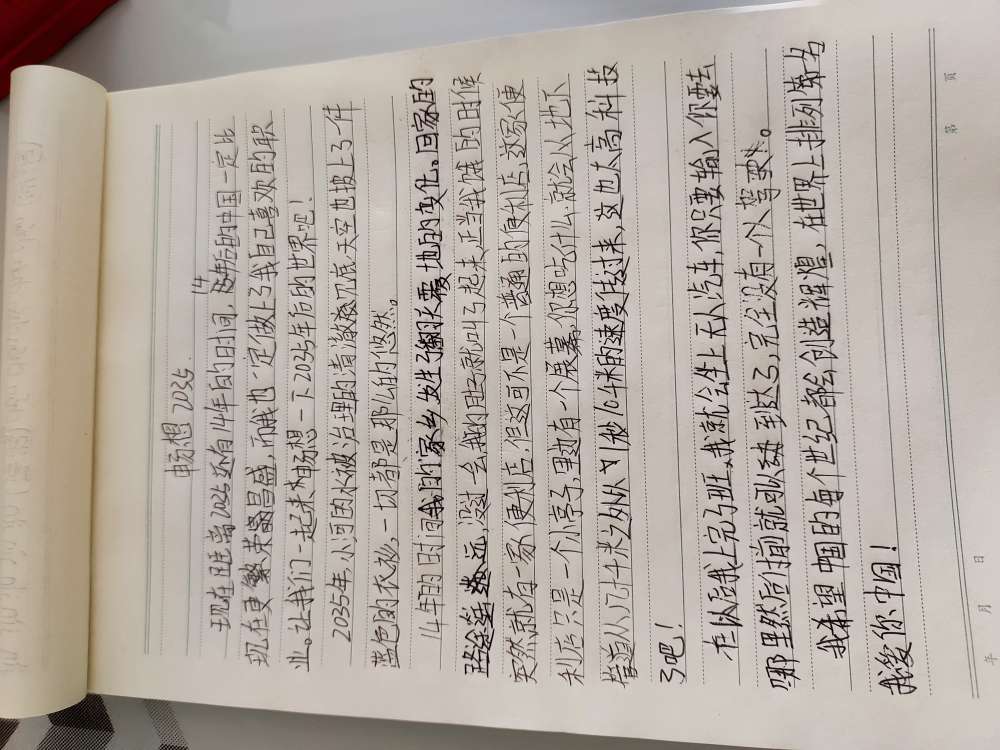 畅想 2035
现在距离2035还有14年的时间,14年后的中国一定比
现在更繁荣昌盛,而我也一定做上了我自己喜欢的职
业。让我们一起来畅想一下2035年后的世界吧!
2035年,小河因水被治理的清澈见底,天空也披上了件
蓝色的衣衫,一切都是那么的悠然。
14年的时间我的家乡发生了翻天覆地的变化。回家的
路途遥远,没过一会我的肚子就叫了起来,正当我饿的时候
突然就有一家便利店,但这可不是一个普通的便利店,这家便
利店只是一个小亭子,里边有一个屏幕,你想吃什么就会从地下
管道从几千米之外以1秒10米的速度传过来,这也太高科技
了吧!
在休后我上完了班,我就会坐上无人汽车,你只要输入你要去
哪里然后向前就可以到达了,完全没有一个人驾驶。
我希望中国的每个世纪都会创造辉煌,在世界上排列第名
我爱你中国!
年 月 日
第 页